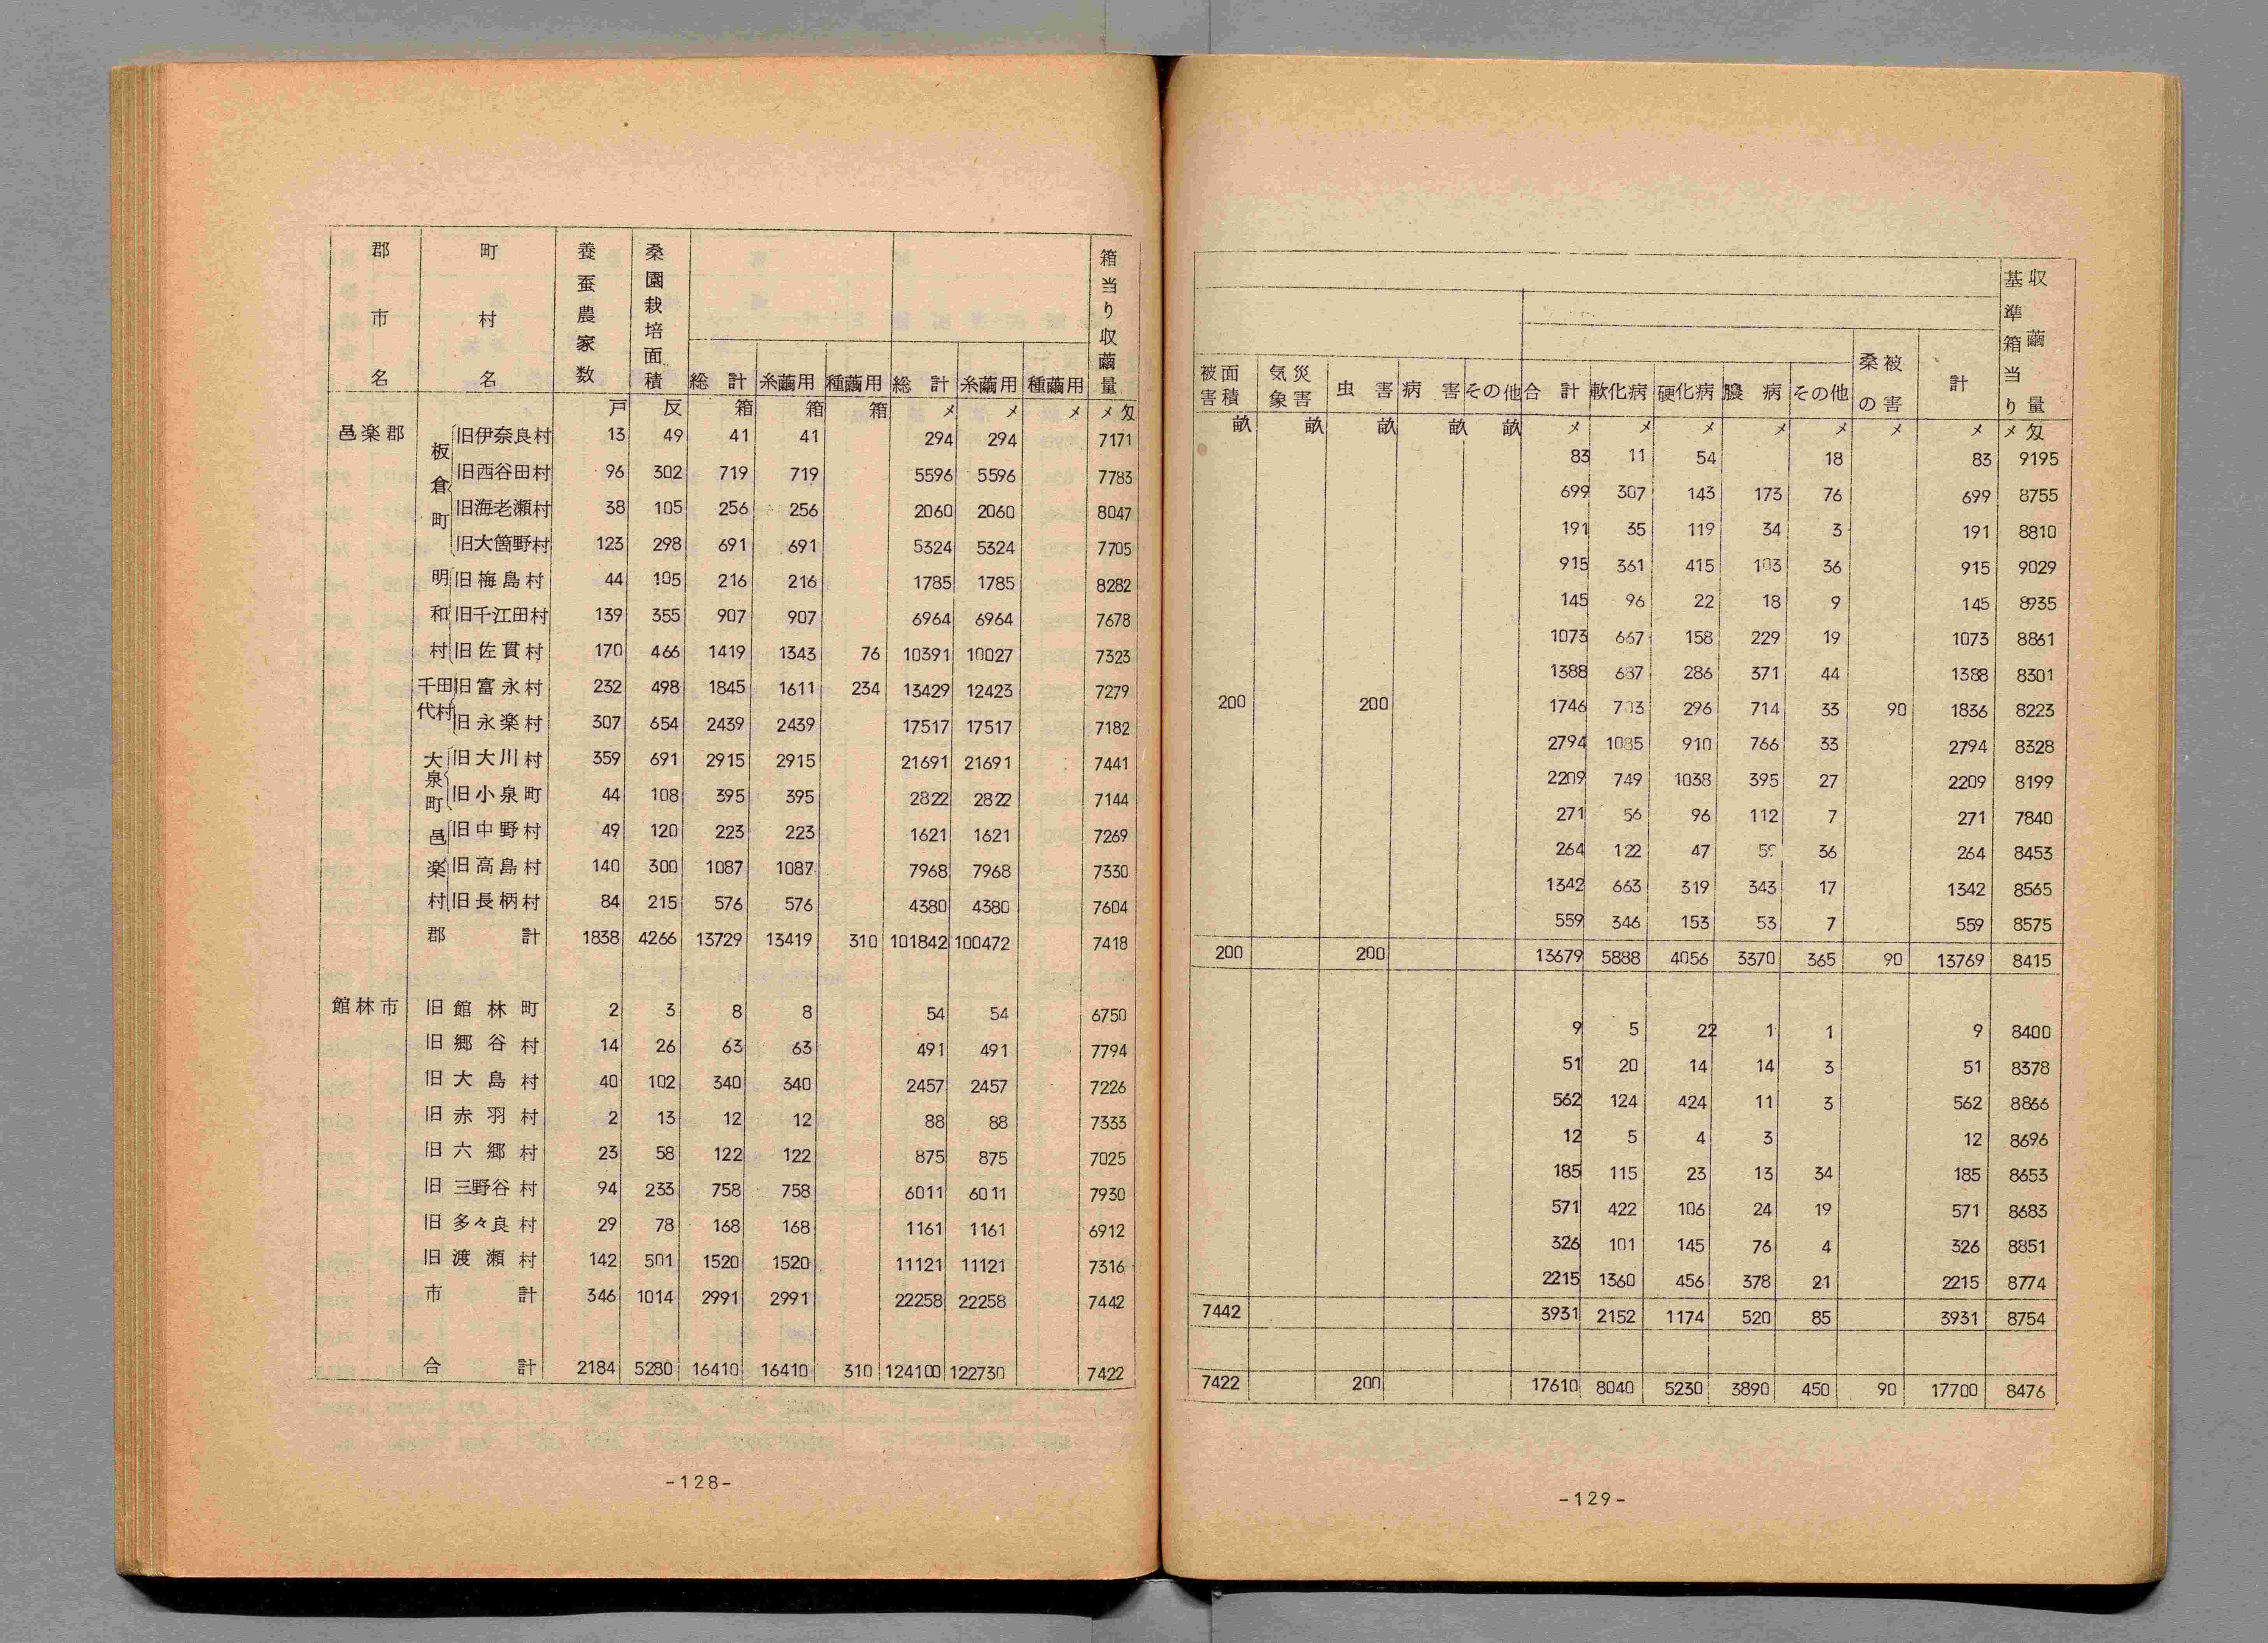 郡市名 町村名 養蚕農家数 桑園栽培面積 総計 糸繭用 種繭用 総計 糸繭用 種繭用 箱当り収繭量
戸 反 箱 箱 箱 メ メ メ メ匁
邑楽郡 板倉町 旧伊奈良村 13 49 41 41 294 294 7171
旧西谷田村 96 302 719 719 5596 5596 7783
旧海老瀬村 38 105 256 256 2060 2060 8047
旧大箇野村 123 298 691 691 5324 5324 7705
明和村 旧梅島村 44 105 216 216 1785 1785 8282
旧千江田村 139 355 907 907 6964 6964 7678
旧佐貫村 170 466 1419 1343 76 10391 10027 7323
千代田村 旧富永村 232 498 1845 1611 234 13429 12423 7279
旧永楽村 307 654 2439 2439 17517 17517 7182
大泉町 旧大川村 359 691 2915 2915 21691 21691 7441
旧小泉町 44 108 395 395 2822 2822 7144
邑楽村 旧中野村 49 120 223 223 1621 1621 7269
旧高島村 140 300 1087 1087 7968 7968 7330
旧長柄村 84 215 576 576 4380 4380 7604
郡計 1838 4266 13729 13419 310 101842 100472 7418
館林市 旧館林町 2 3 8 8 54 54 6750
旧郷谷村 14 26 63 63 491 491 7794
旧大島村 40 102 340 340 2457 2457 7226
旧赤羽村 2 13 12 12 88 88 7333
旧六郷村 23 58 122 122 875 875 7025
旧三野谷村 94 233 758 758 6011 6011 7930
旧多々良村 29 78 168 168 1161 1161 6912
旧渡瀬村 142 501 1520 1520 11121 11121 7316
市計 346 1014 2991 2991 22258 22258 7442
合計 2184 5280 16410 16410 310 124100 122730 7422
-128-
被害面積 気象災害 虫害 病害 その他 合計 軟化病 硬化病 膿病 その他 桑の被害 計 基準箱当り収繭量
畝 畝 畝 畝 畝 メ メ メ メ メ メ メ メ匁
83 11 54 18 83 9195
699 307 143 173 76 699 8755
191 35 119 34 3 191 8810
915 361 415 103 36 915 9029
145 96 22 18 9 145 8935
1073 667 158 229 19 1073 8861
1388 687 286 371 44 1388 8301
200 200 1746 703 296 714 33 90 1836 8223
2794 1085 910 766 33 2794 8328
2209 749 1038 395 27 2209 8199
271 56 96 112 7 271 7840
264 122 47 59 36 264 8453
1342 663 319 343 17 1342 8565
559 346 153 53 7 559 8575
200 200 13679 5888 4056 3370 365 90 13769 8415
9 5 22 1 1 9 8400
51 20 14 14 3 51 8378
562 124 424 11 3 562 8866
12 5 4 3 12 8696
185 115 23 13 34 185 8653
571 422 106 24 19 571 8683
326 101 145 76 4 326 8851
2215 1360 456 378 21 2215 8774
7442 3931 2152 1174 520 85 3931 8754
7422 200 17610 8040 5230 3890 450 90 17700 8476
-129-